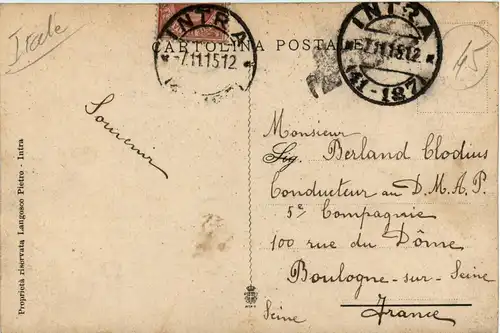 Itale
INTRA
-7.11.15 12
INTRA
-7.11.15 12
(41-127)
CARTOLINA POSTALE
45
Souvenir
Monsieur
Sig. Berland Clodius
Conducteur au D.M.A.P.
5e Compagnie
100 rue du Dôme
Boulogne-sur-Seine
Seine
France
Proprietà riservata Langosco Pietro - Intra